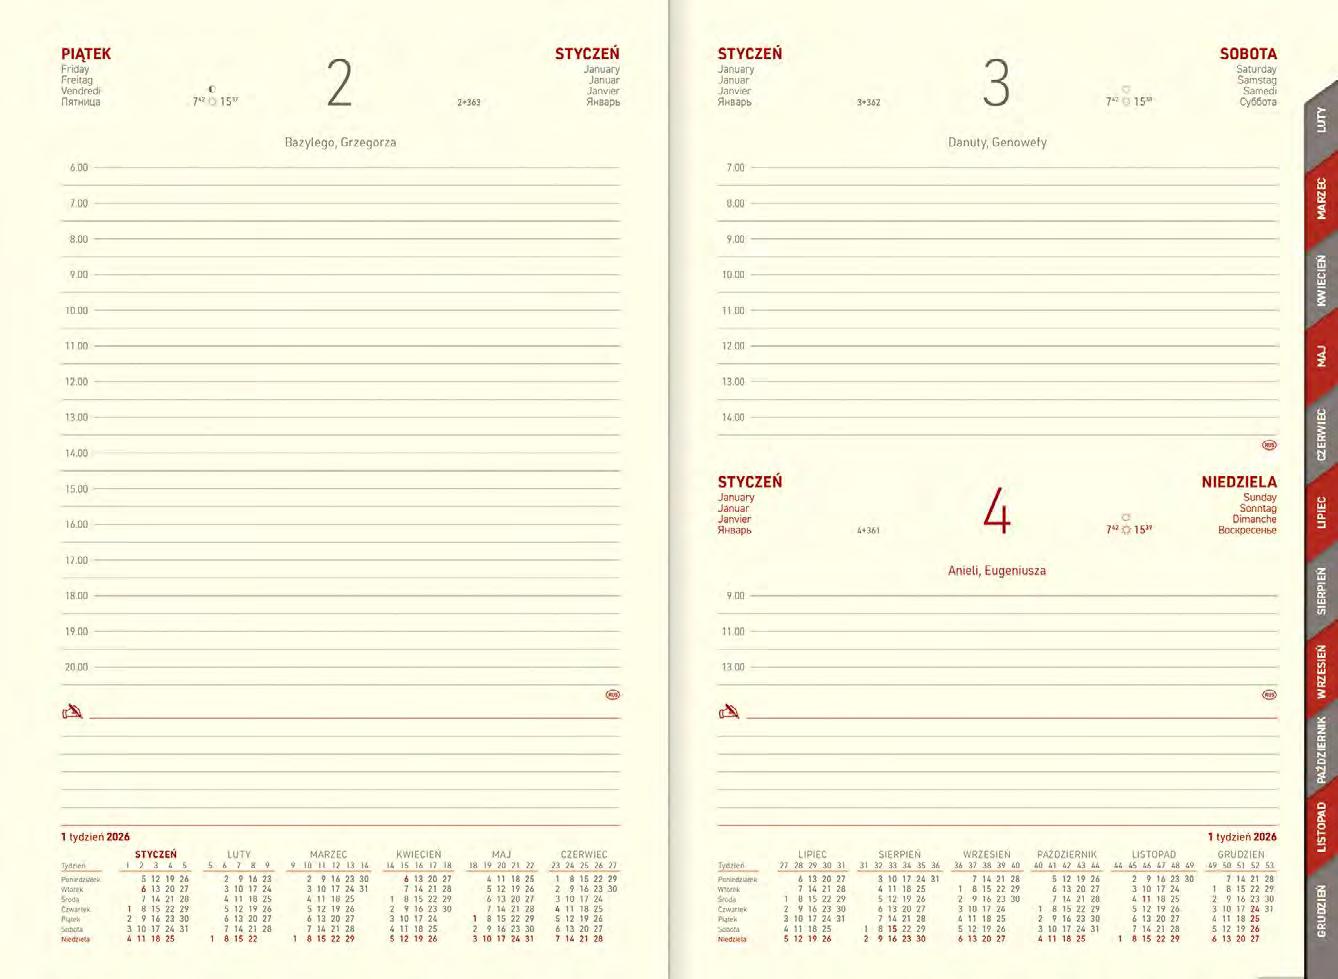 PIĄTEK
Friday
Freitag
Vendredi
Пятница
7⁴² 15³⁷
2
2+363
STYCZEŃ
January
Januar
Janvier
Январь
Bazylego, Grzegorza
6.00
7.00
8.00
9.00
10.00
11.00
12.00
13.00
14.00
15.00
16.00
17.00
18.00
19.00
20.00
RUS
1 tydzień 2026
STYCZEŃ LUTY MARZEC KWIECIEŃ MAJ CZERWIEC
Tydzień 1 2 3 4 5 5 6 7 8 9 9 10 11 12 13 14 14 15 16 17 18 18 19 20 21 22 23 24 25 26 27
Poniedziałek 5 12 19 26 2 9 16 23 2 9 16 23 30 6 13 20 27 4 11 18 25 1 8 15 22 29
Wtorek 6 13 20 27 3 10 17 24 3 10 17 24 31 7 14 21 28 5 12 19 26 2 9 16 23 30
Środa 7 14 21 28 4 11 18 25 4 11 18 25 1 8 15 22 29 6 13 20 27 3 10 17 24
Czwartek 1 8 15 22 29 5 12 19 26 5 12 19 26 2 9 16 23 30 7 14 21 28 4 11 18 25
Piątek 2 9 16 23 30 6 13 20 27 6 13 20 27 3 10 17 24 1 8 15 22 29 5 12 19 26
Sobota 3 10 17 24 31 7 14 21 28 7 14 21 28 4 11 18 25 2 9 16 23 30 6 13 20 27
Niedziela 4 11 18 25 1 8 15 22 1 8 15 22 29 5 12 19 26 3 10 17 24 31 7 14 21 28
STYCZEŃ
January
Januar
Janvier
Январь
3+362
3
7⁴² 15³⁸
SOBOTA
Saturday
Samstag
Samedi
Суббота
Danuty, Genowefy
7.00
8.00
9.00
10.00
11.00
12.00
13.00
14.00
RUS
STYCZEŃ
January
Januar
Janvier
Январь
4+361
4
7⁴² 15³⁹
NIEDZIELA
Sunday
Sonntag
Dimanche
Воскресенье
Anieli, Eugeniusza
9.00
11.00
13.00
RUS
1 tydzień 2026
LIPIEC SIERPIEŃ WRZESIEŃ PAŹDZIERNIK LISTOPAD GRUDZIEŃ
Tydzień 27 28 29 30 31 31 32 33 34 35 36 36 37 38 39 40 40 41 42 43 44 44 45 46 47 48 49 49 50 51 52 53
Poniedziałek 6 13 20 27 3 10 17 24 31 7 14 21 28 5 12 19 26 2 9 16 23 30 7 14 21 28
Wtorek 7 14 21 28 4 11 18 25 1 8 15 22 29 6 13 20 27 3 10 17 24 1 8 15 22 29
Środa 1 8 15 22 29 5 12 19 26 2 9 16 23 30 7 14 21 28 4 11 18 25 2 9 16 23 30
Czwartek 2 9 16 23 30 6 13 20 27 3 10 17 24 1 8 15 22 29 5 12 19 26 3 10 17 24 31
Piątek 3 10 17 24 31 7 14 21 28 4 11 18 25 2 9 16 23 30 6 13 20 27 4 11 18 25
Sobota 4 11 18 25 1 8 15 22 29 5 12 19 26 3 10 17 24 31 7 14 21 28 5 12 19 26
Niedziela 5 12 19 26 2 9 16 23 30 6 13 20 27 4 11 18 25 1 8 15 22 29 6 13 20 27
LUTY
MARZEC
KWIECIEŃ
MAJ
CZERWIEC
LIPIEC
SIERPIEŃ
WRZESIEŃ
PAŹDZIERNIK
LISTOPAD
GRUDZIEŃ